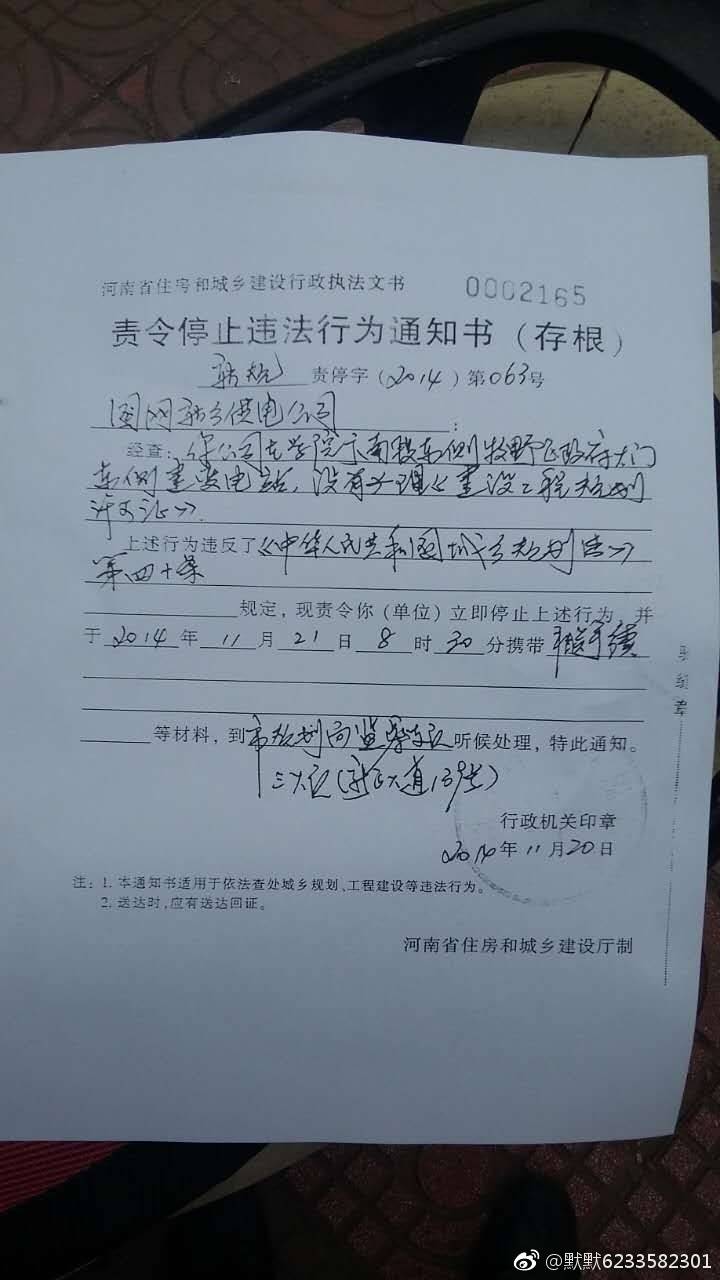 河南省住房和城乡建设行政执法文书 0002165
责令停止违法行为通知书（存根）
新规 责停字（2014）第063号
国网新乡供电公司：
经查：你公司在学院小南段东侧牧野区政府大门
东侧建变电站，没有办理《建设工程规划
许可证》.
上述行为违反了《中华人民共和国城乡规划法》
第四十条
规定，现责令你（单位）立即停止上述行为，并
于2014年11月21日8时30分携带相关手续
等材料，到市规划局监察支队听候处理，特此通知。
三大队
行政机关印章
2014年11月20日
注：1.本通知书适用于依法查处城乡规划、工程建设等违法行为。
2.送达时，应有送达回证。
河南省住房和城乡建设厅制
@默默6233582301